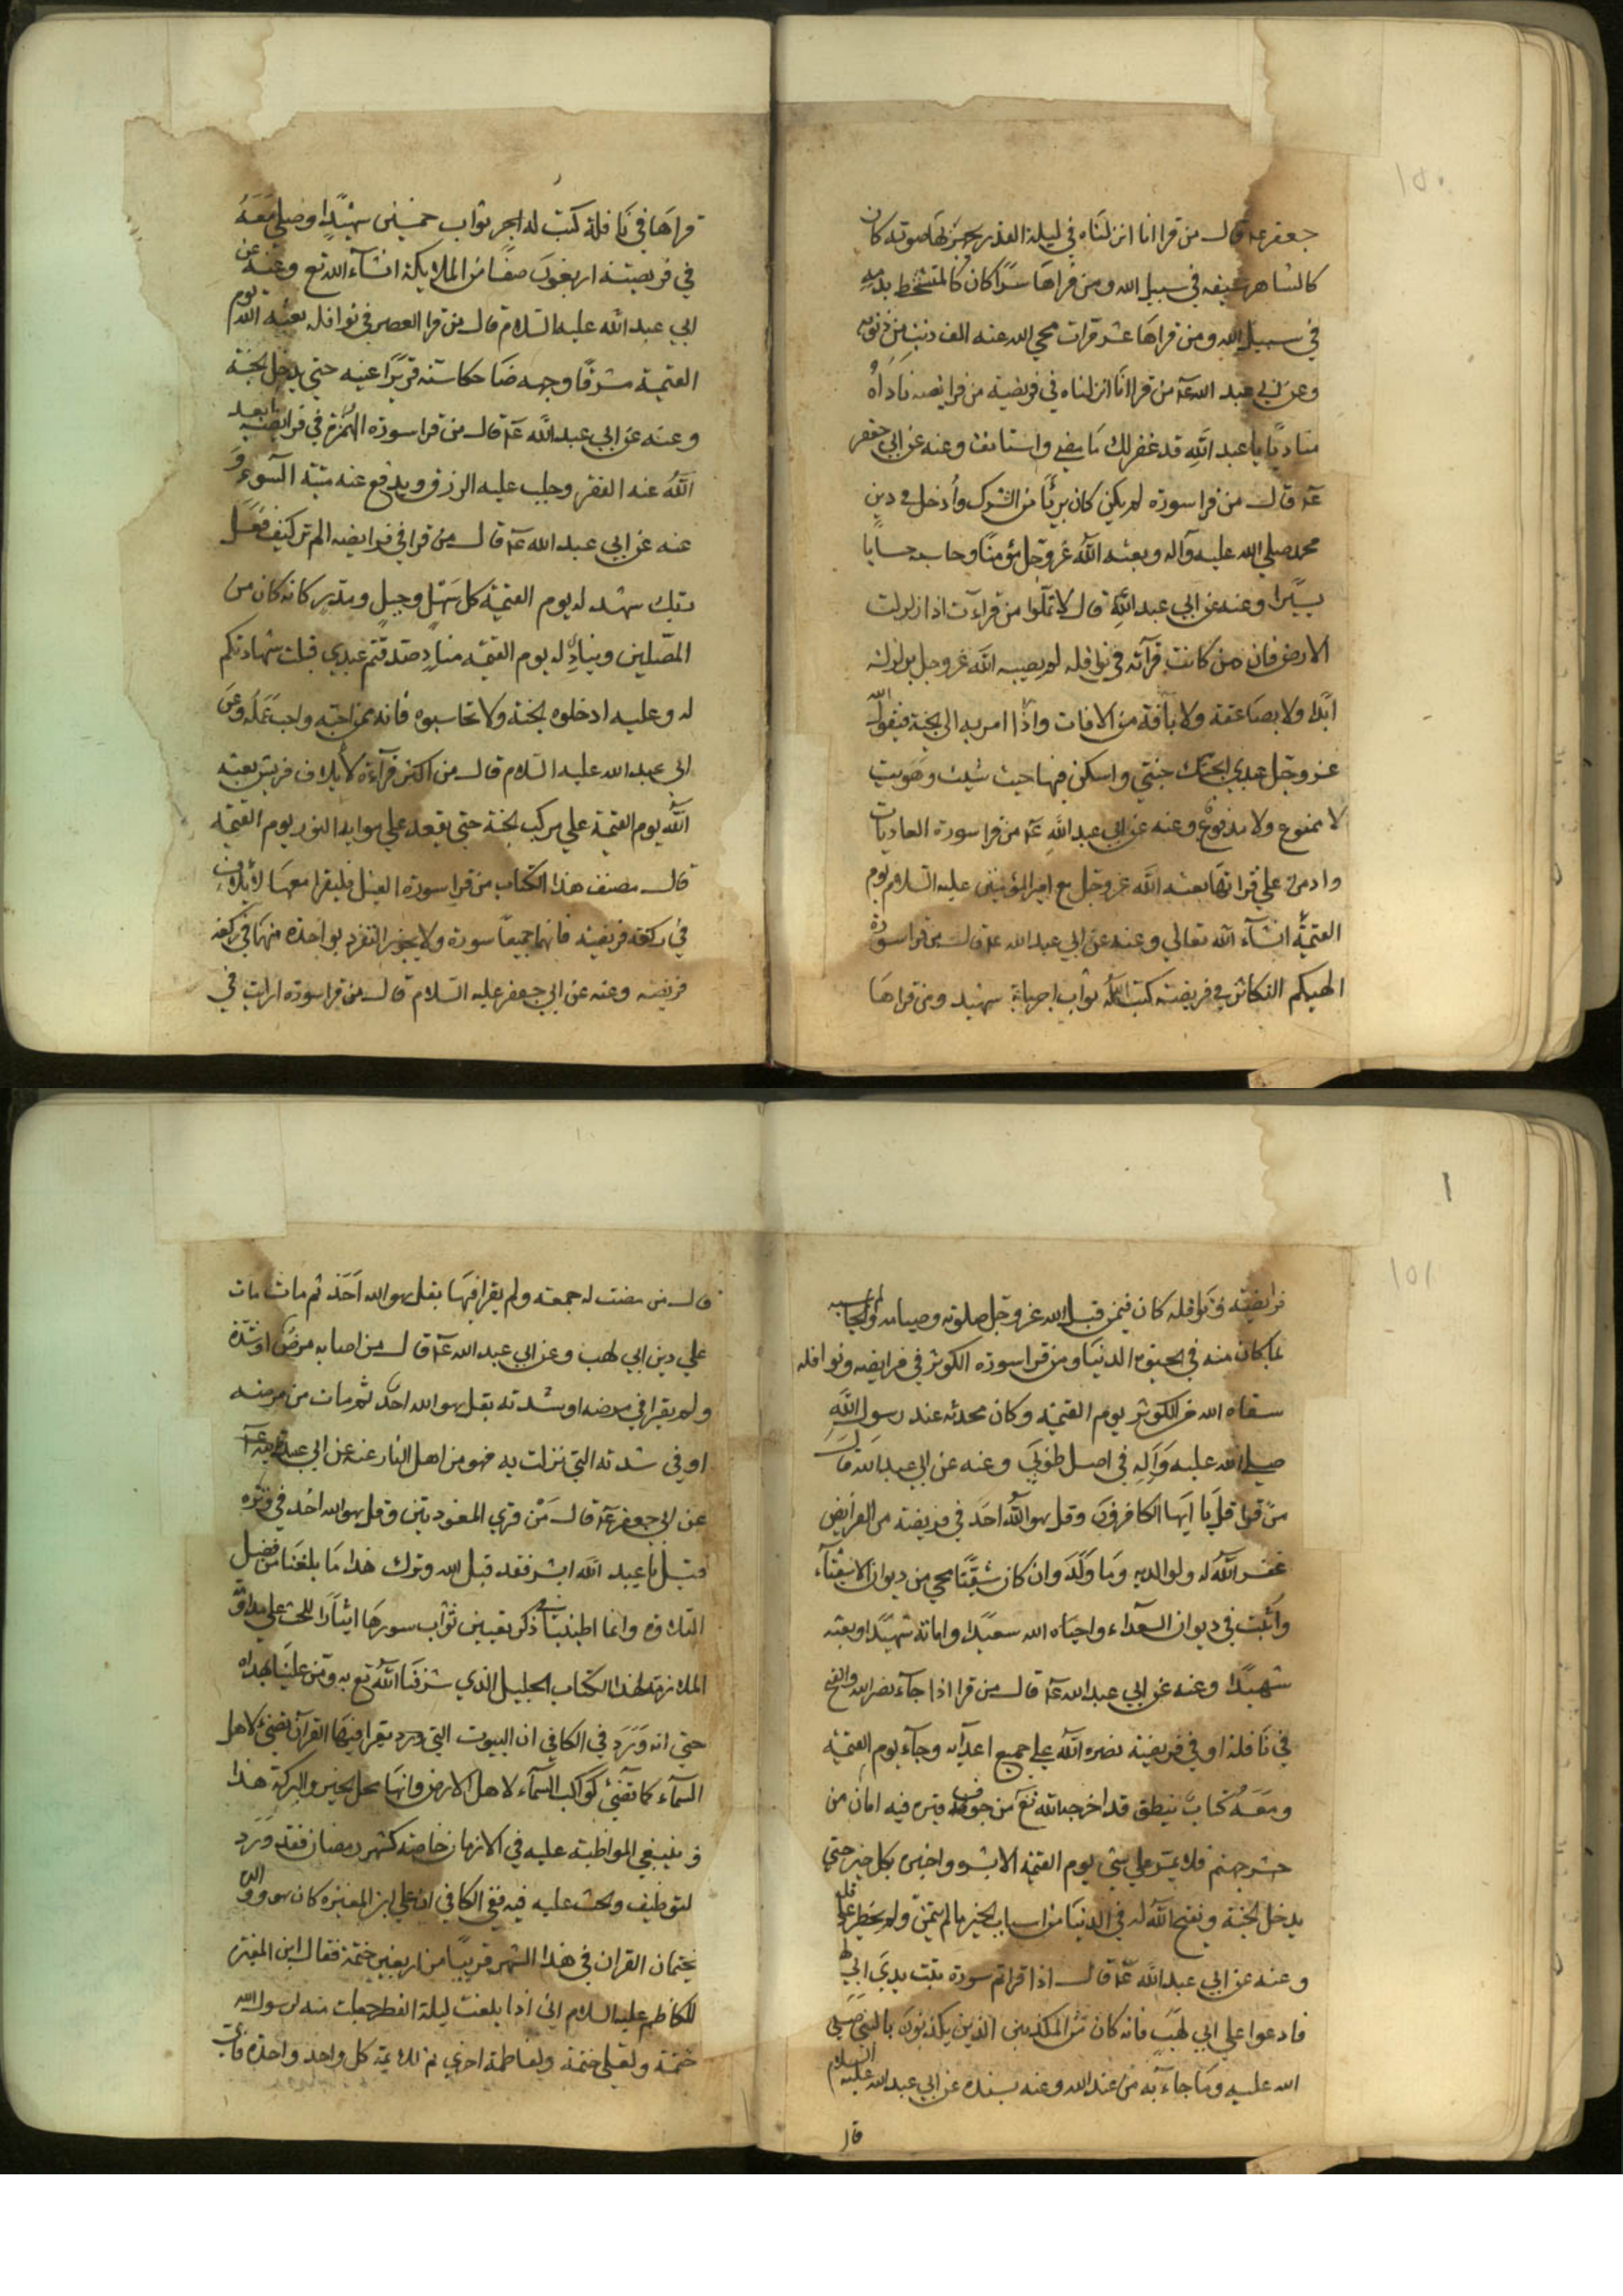 ١٥٠
جعفر عۤ قال من قرا انا انزلناه في ليلة القدر يجهر بها صوته كان
كالشاهر سيفه في سبيل الله ومن قراها سرًا كان كالمتشحط بدمه
في سبيل الله ومن قراها عشر مرات محي الله عنه الف ذنب من ذنوبه
وعن ابي عبد الله عۤ من قرا انا انزلناه في فريضة من فرايضه ناداه
مناديًا يا عبد الله قد غفر لك ما مضي واستانف وعنه عن ابي جعفر
عۤ قال من قرا سورة لم يكن كان بريًا من الشرك وأدخل في دين
محمد صلي الله عليه وآله وبعثه الله عز وجل مؤمنًا وحاسبه حسابا
يسيرا وعنه عن ابي عبد الله قال لا تملّوا من قراءة اذا زلزلت
الارض فان من كانت قرآته في نوافله لم يصبه الله عز وجل بزلزلة
ابدًا ولا بصاعقة ولا بآفة من الافات واذا امر به الي الجنة فيقول الله
عز وجل عبدي ابحتك جنتي واسكن منها حيث شيت وهويت
لا ممنوع ولا مدفوع وعنه عن ابي عبد الله عۤ من قرا سورة العاديات
وادمن علي قراتها بعثه الله عز وجل مع امير المؤمنين عليه السلام يوم
القيمة انشآء الله تعالي وعنه عن ابي عبد الله عۤ قال من قرا سورة
الهيكم التكاثر في فريضته كتب الله له ثواب اجر ماية شهيد ومن قراها
قراها في نافلة كتب له اجر ثواب خمسين شهيدًا وصلي معه
في فريضته اربعون صفًا من الملايكة انشآء الله تع وعنه عن
ابي عبد الله عليه السلام قال من قرا العصر في نوافله بعثه الله يوم
القيمة مشرقًا وجهه ضاحكا سنه قريرًا عينه حتي يدخل الجنة
وعنه عن ابي عبد الله عۤ قال من قرا سورة الهمزة في فرايضه ابعد
الله عنه الفقر وجلب عليه الرزق ويدفع عنه ميتة السوء و
عنه عن ابي عبد الله عۤ قال من قرا في فرايضه الم تر كيف فعل
ربك شهد له يوم القيمة كل سهل وجبل ومدر كانه كان من
المصلين وينادي له يوم القيمة منادٍ صدقتم عبدي قبلت شهادتكم
له وعليه ادخلوه الجنة ولا تحاسبوه فانه ممن احبه واحب عمله وعن
ابي عبد الله عليه السلام قال من اكثر قرآءة لايلاف قريش بعثه
الله يوم القيمة علي مركب الجنة حتي يقعد علي موايد النور يوم القيمة
قال مصنف هذا الكتاب من قرا سورة الفيل فليقرا معها لايلاف
في ركعة فريضة فانهما جميعًا سورة ولا يجوز التفرد بواحدة منهما في ركعة
فريضة وعنه عن ابي جعفر عليه السلام قال من قرا سورة ارايت في
١
١٥١
فرايضه ونوافله كان فيمن قبل الله عز وجل صلوته وصيامه ولم يحاسبه
بما كان منه في الحيوة الدنيا ومن قرا سورة الكوثر في فرايضه ونوافله
سقاه الله من الكوثر يوم القيمة وكان محدثه عند رسول الله
صلي الله عليه وآله في اصل طوبي وعنه عن ابي عبد الله قال
من قرا قل يا ايها الكافرون وقل هو الله احد في فريضة من الفرايض
غفر الله له ولوالديه وما ولد وان كان شقيًا محي من ديوان الاشقيآء
واثبت في ديوان السعداء واحياه الله سعيدًا واماته شهيدًا وبعثه
شهيدًا وعنه عن ابي عبد الله عۤ قال من قرا اذا جآء نصر الله والفتح
في نافلة او في فريضة نصره الله علي جميع اعدآئه وجآء يوم القيمة
ومعه كتاب ينطق قد اخرجه الله تع من جوف قبره فيه امان من
حر جهنم فلا يمر علي شي يوم القيمة الا بشره واخبره بكل خير حتي
يدخل الجنة ويفتح الله له في الدنيا من اسباب الخير ما لم يتمن ولم يخطر علي قلبه
وعنه عن ابي عبد الله عۤ قال اذا قراتم سورة تبت يدي ابي لهب
فادعوا علي ابي لهب فانه كان من المكذبين الذين يكذبون بالنبي صلي
الله عليه وما جاء به من عند الله وعنه بسنده عن ابي عبد الله عليه السلام
قال
قال من مضت له جمعة ولم يقرا فيها بقل هو الله احد ثم مات مات
علي دين ابي لهب وعن ابي عبد الله عۤ قال من اصابه مرض او شدة
ولم يقرا في مرضه او شدته بقل هو الله احد ثم مات من مرضه
او في شدته التي نزلت به فهو من اهل النار عنه عن ابي عبيدة
عن ابي جعفر عۤ قال من قري المعوذتين وقل هو الله احد في وتره
قيل يا عبد الله ابشر فقد قبل الله وترك هذا ما بلغنا من فضل
التلاوة وانما اطنبنا في ذكر تعيين ثواب سورها ايثارًا للحث علي
الملازمة لهذا الكتاب الجليل الذي شرفنا الله تع به ومن علينا بهداه
حتي انه ورد في الكافي ان البيوت التي يقرا فيها القرآن تضئ لاهل
السمآء كما تضئ كواكب السمآء لاهل الارض وانها محل الخير والبركة هذا
وينبغي المواظبة عليه في الازمان خاصة كشهر رمضان فقد ورد
التوظيف والحث عليه فيه ففي الكافي ان علي بن المغيرة كان هو ووالده
يختمان القران في هذا الشهر قريبًا من اربعين ختمة فقال ابن المغيرة
للكاظم عليه السلام اني اذا بلغت ليلة الفطر جعلت منه لرسول الله
ختمة ولعلي ختمة ولفاطمة اخري ثم للايمة كل واحد واحدة فاي